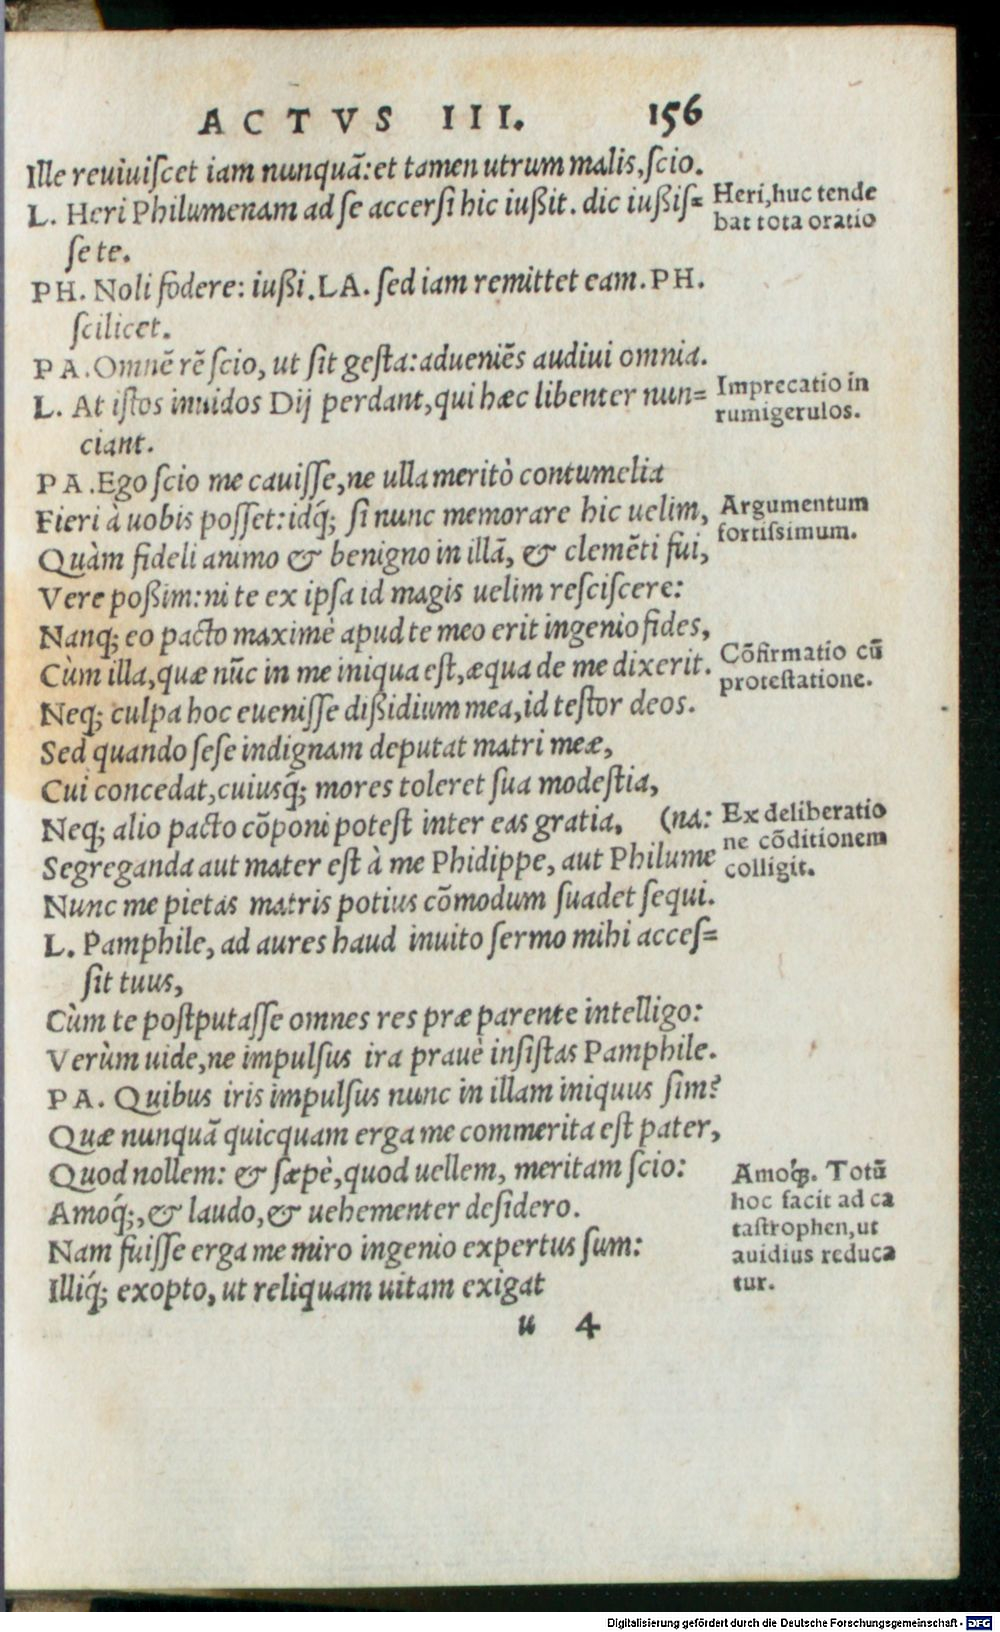 ACTVS III. 156
Ille reuiuiſcet iam nunquã: et tamen utrum malis, ſcio.
L. Heri Philumenam ad ſe accerſi hic iußit. dic iußiſ=
ſe te.
Heri, huc tende
bat tota oratio
PH. Noli fodere: iußi. LA. ſed iam remittet eam. PH.
ſcilicet.
PA. Omnẽ rẽ ſcio, ut ſit geſta: adueniẽs audiui omnia.
L. At iſtos inuidos Dij perdant, qui hæc libenter nun=
ciant.
Imprecatio in
rumigerulos.
PA. Ego ſcio me cauiſſe, ne ulla meritò contumelia
Fieri à uobis poſſet: idq́; ſi nunc memorare hic uelim,
Argumentum
fortiſsimum.
Quàm fideli animo & benigno in illã, & clemẽti fui,
Vere poßim: ni te ex ipſa id magis uelim reſciſcere:
Nanq; eo pacto maximè apud te meo erit ingenio fides,
Cùm illa, quæ nũc in me iniqua eſt, æqua de me dixerit.
Cõfirmatio cũ
proteſtatione.
Neq; culpa hoc eueniſſe dißidium mea, id teſtor deos.
Sed quando ſeſe indignam deputat matri meæ,
Cui concedat, cuiusq́; mores toleret ſua modeſtia,
Neq; alio pacto cõponi poteſt inter eas gratia, (na:
Segreganda aut mater eſt à me Phidippe, aut Philume
Ex deliberatio
ne cõditionem
colligit.
Nunc me pietas matris potius cõmodum ſuadet ſequi.
L. Pamphile, ad aures haud inuito ſermo mihi acceſ=
ſit tuus,
Cùm te poſtputaſſe omnes res præ parente intelligo:
Verùm uide, ne impulſus ira prauè inſiſtas Pamphile.
PA. Quibus iris impulſus nunc in illam iniquus ſim?
Quæ nunquã quicquam erga me commerita eſt pater,
Quod nollem: & ſæpè, quod uellem, meritam ſcio:
Amoq́;, & laudo, & uehementer deſidero.
Nam fuiſſe erga me miro ingenio expertus ſum:
Illiq́; exopto, ut reliquam uitam exigat
Amoq́;. Totũ
hoc facit ad ca
taſtrophen, ut
auidius reduca
tur.
u 4
Digitalisierung gefördert durch die Deutsche Forschungsgemeinschaft - DFG